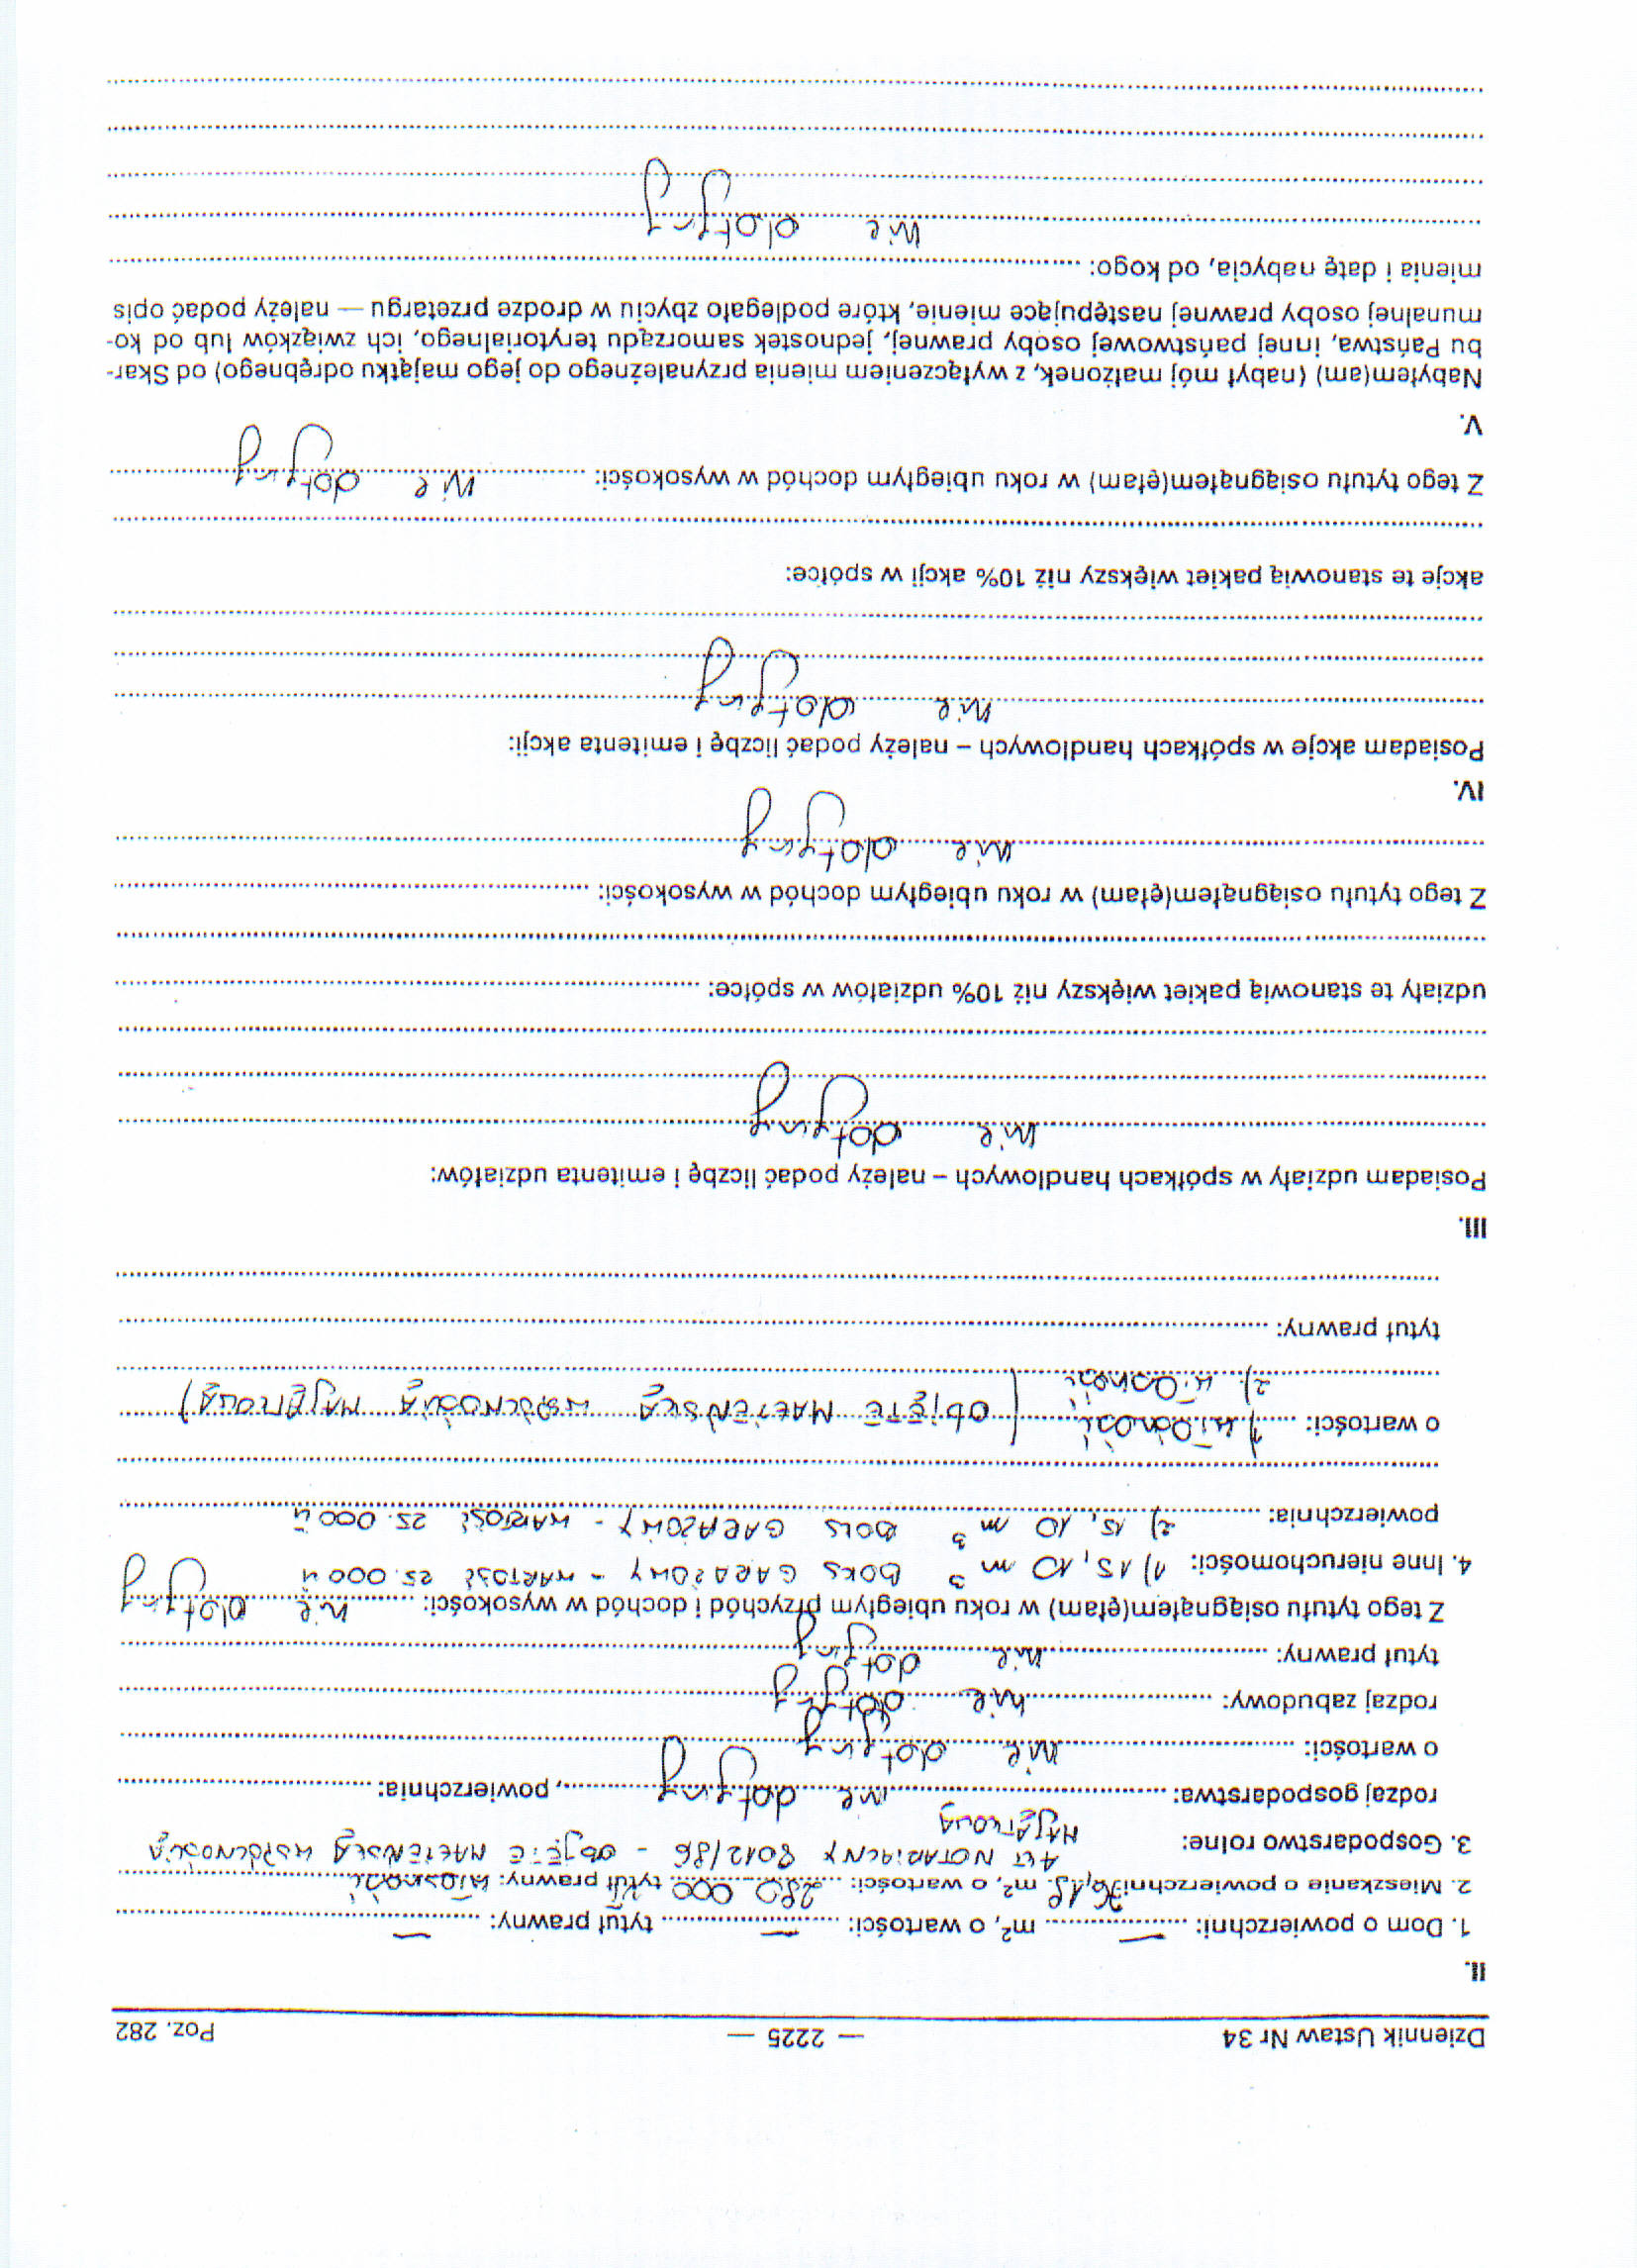 Dziennik Ustaw Nr 34 — 2225 — Poz. 282
II.
1. Dom o powierzchni: — m², o wartości: — tytuł prawny: —
2. Mieszkanie o powierzchni: m², o wartości: 280 000 zł tytuł prawny: własność
AKT NOTARIALNY 8012/86 - OBJĘTE MAŁŻEŃSKĄ WSPÓLNOŚCIĄ
3. Gospodarstwo rolne: MAJĄTKOWĄ
rodzaj gospodarstwa: nie dotyczy, powierzchnia:
o wartości: nie dotyczy
rodzaj zabudowy: nie dotyczy
tytuł prawny: nie dotyczy
Z tego tytułu osiągnąłem(ęłam) w roku ubiegłym przychód i dochód w wysokości: nie dotyczy
4. Inne nieruchomości: 1) 15,10 m³ BOKS GARAŻOWY - WARTOŚĆ 25.000 zł
powierzchnia: 2) 15,10 m³ BOKS GARAŻOWY - WARTOŚĆ 25.000 zł
o wartości: 1) własność (OBJĘTE MAŁŻEŃSKĄ WSPÓLNOŚCIĄ MAJĄTKOWĄ)
2) własność
tytuł prawny:
III.
Posiadam udziały w spółkach handlowych – należy podać liczbę i emitenta udziałów:
nie dotyczy
udziały te stanowią pakiet większy niż 10% udziałów w spółce:
Z tego tytułu osiągnąłem(ęłam) w roku ubiegłym dochód w wysokości:
nie dotyczy
IV.
Posiadam akcje w spółkach handlowych – należy podać liczbę i emitenta akcji:
nie dotyczy
akcje te stanowią pakiet większy niż 10% akcji w spółce:
Z tego tytułu osiągnąłem(ęłam) w roku ubiegłym dochód w wysokości: nie dotyczy
V.
Nabyłem(am) (nabył mój małżonek, z wyłączeniem mienia przynależnego do jego majątku odrębnego) od Skar-
bu Państwa, innej państwowej osoby prawnej, jednostek samorządu terytorialnego, ich związków lub od ko-
munalnej osoby prawnej następujące mienie, które podlegało zbyciu w drodze przetargu — należy podać opis
mienia i datę nabycia, od kogo:
nie dotyczy